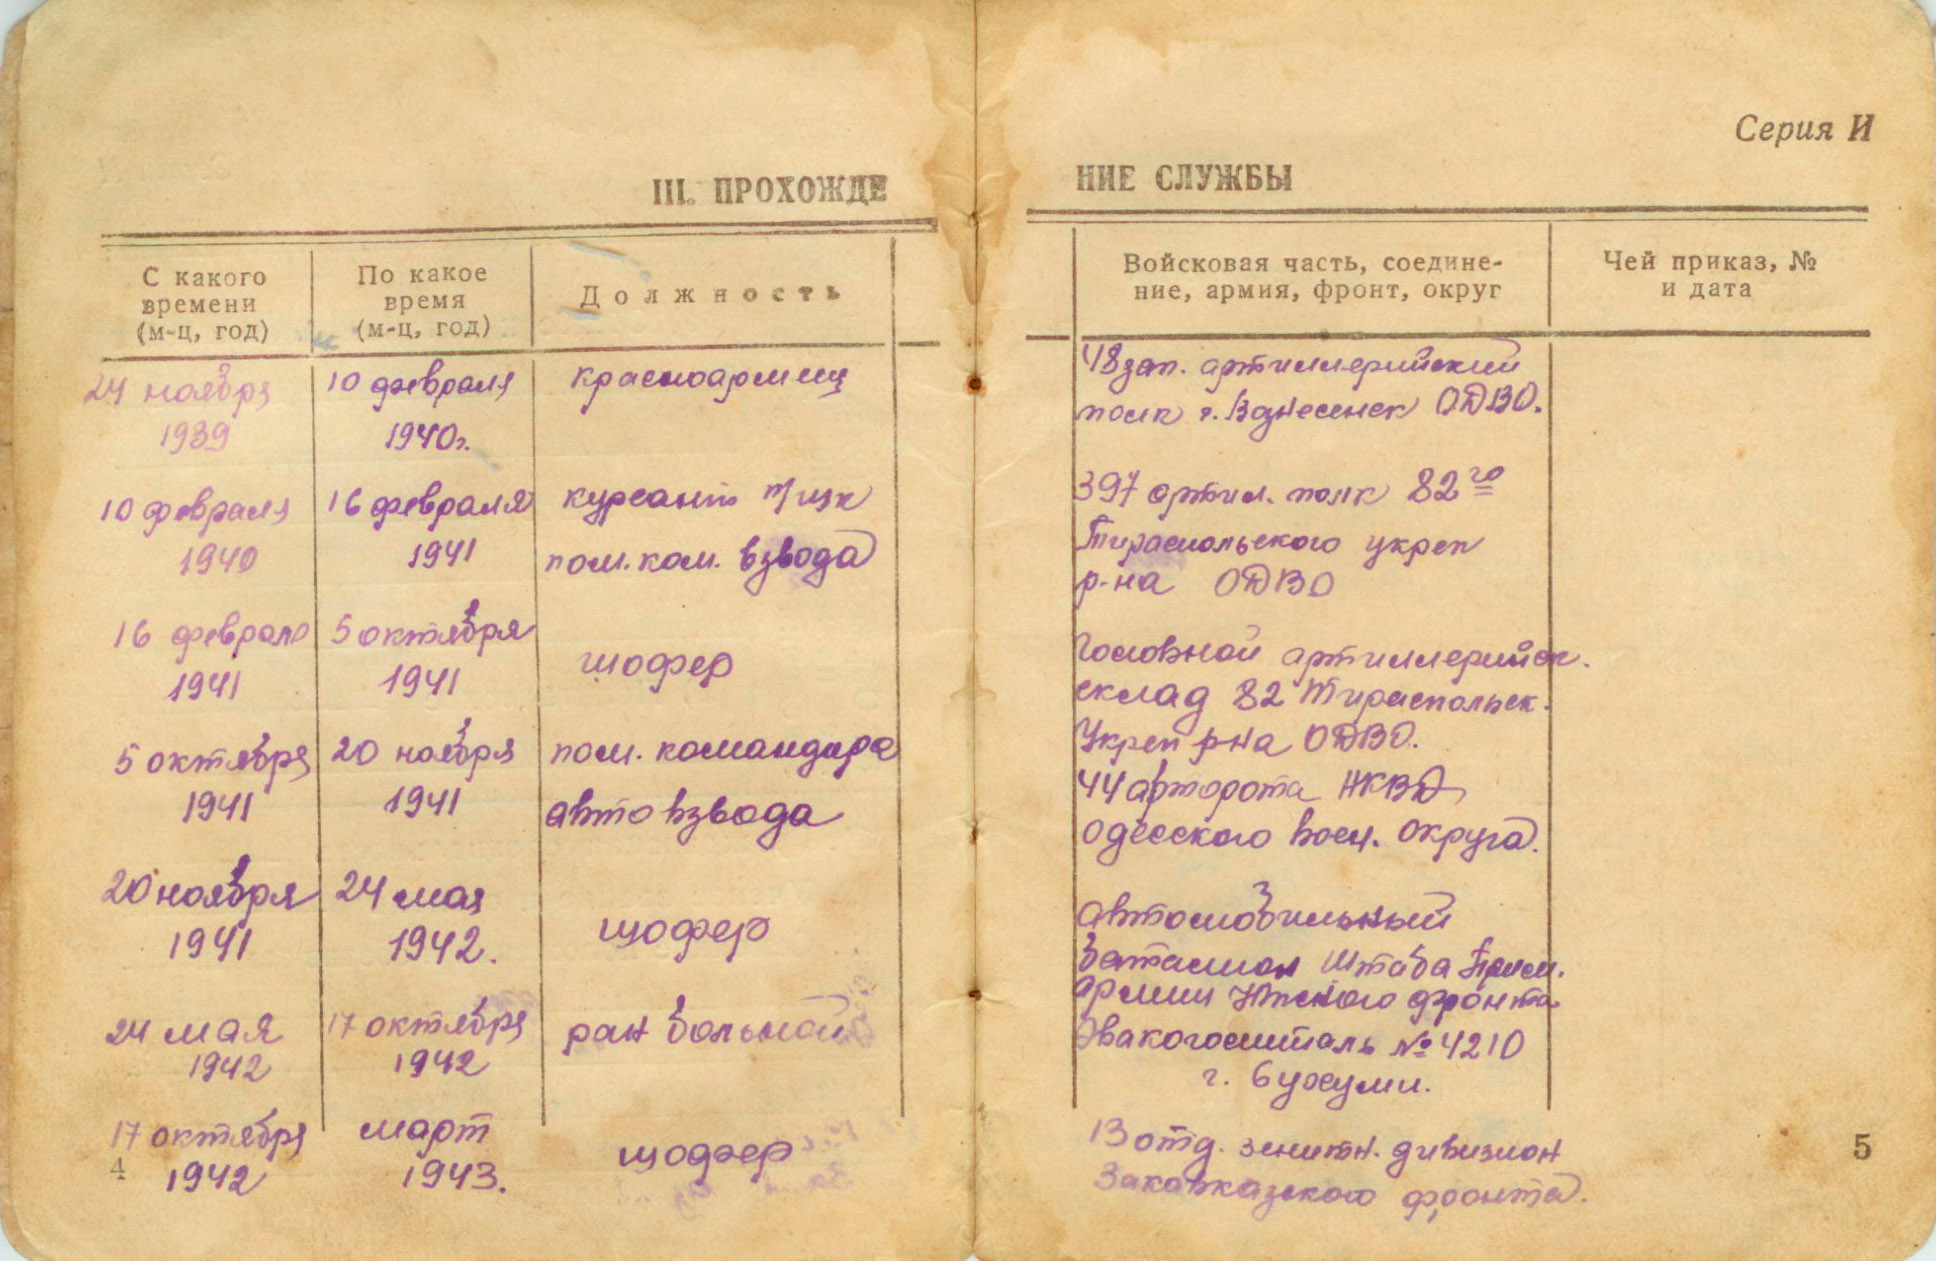 Серия И
III. ПРОХОЖДЕ
НИЕ СЛУЖБЫ
С какого
времени
(м-ц, год)
По какое
время
(м-ц, год)
Должность
Войсковая часть, соедине-
ние, армия, фронт, округ
Чей приказ, №
и дата
24 ноября
1939
10 февраля
1940г.
красноармеец
48 зап. артиллерийский
полк г. Вознесенск ОДВО.
10 февраля
1940
16 февраля
1941
курсант
пом. ком. взвода
397 артил. полк 82го
Тираспольского укреп
р-на ОДВО
16 февраля
1941
5 октября
1941
шофер
Головной артиллерийск.
склад 82 Тираспольск.
Укреп р-на ОДВО.
5 октября
1941
20 ноября
1941
пом. командира
автовзвода
44 авторота НКВД
Одесского воен. округа.
20 ноября
1941
24 мая
1942.
шофер
автомобильный
батальон Штаба Прим.
армии фронта
24 мая
1942
17 октября
1942
ран больной
Эвакогоспиталь № 4210
г. Сухуми.
17 октября
1942
март
1943.
шофер
13 отд. зенитн. дивизион
Закавказского фронта.
4
5